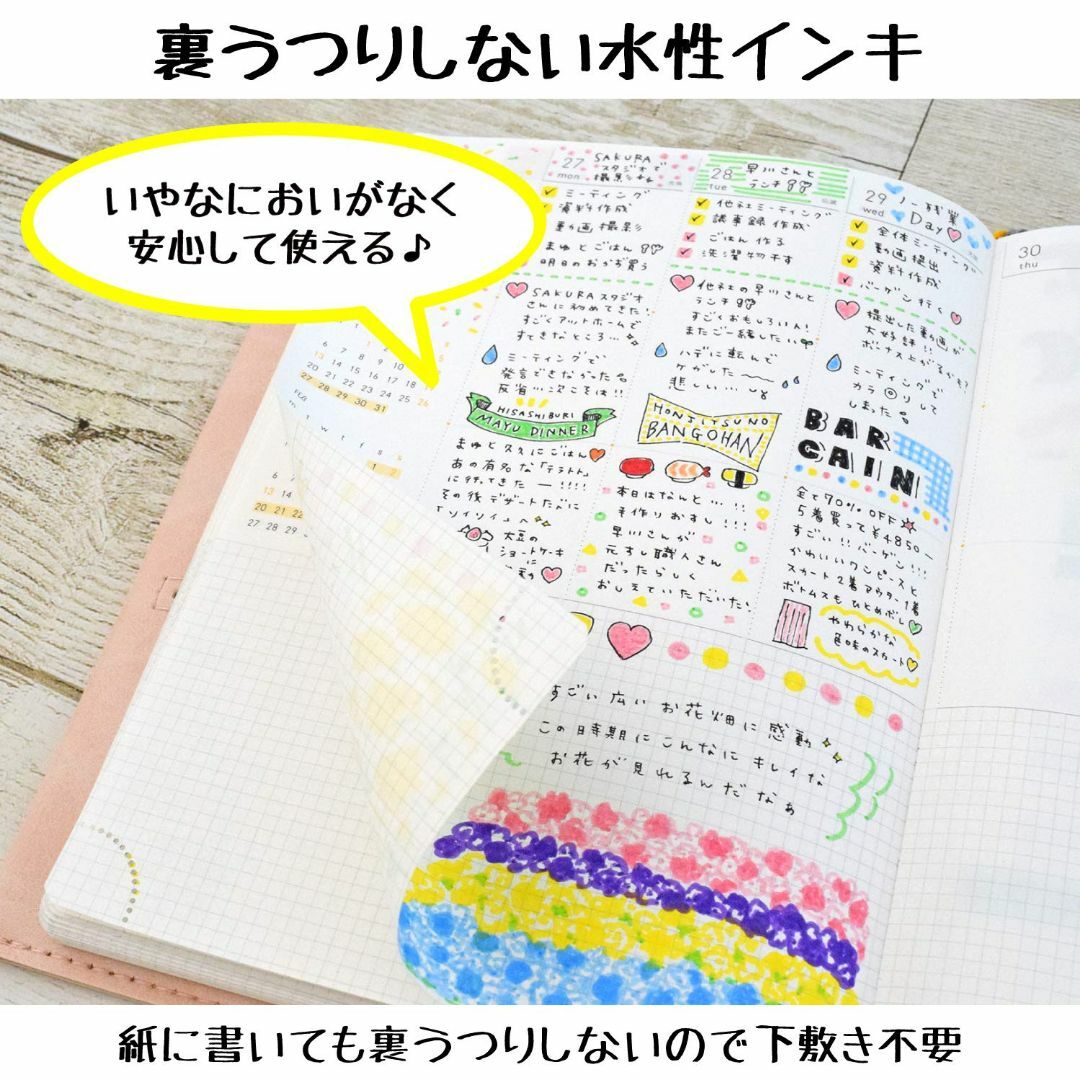 裏うつりしない水性インキ
いやなにおいがなく
安心して使える♪
27 SAKURA
mon スタジオで
撮影
ミーティング
資料作成
動画撮影
まゆとごはん
明日のおかず買う
SAKURAスタジオ
さんに初めてきた!
すごくアットホームで
すてきなところ…
ミーティングで
発言できなかった
反省…次こそは!!
HISASHIBURI
MAYU DINNER
まゆと久々にごはん
あの有名な「テストト」
に行ってきたー!!!!
その後デザートたべに
大豆の
ショートケーキ
28 早川さんと
tue ランチ
他社ミーティング
議事録作成
ごはん作る
洗濯物干す
他社の早川さんと
ランチ
すごくおもしろい人!
またご一緒したい
ハデに転んで
ケガした
悲しい…
HONJITSUNO
BANGOHAN
本日はなんと…
手作りおすし!!!
早川さんが
元すし職人さん
だったらしく
おしえていただいた!
29 ノー残業
wed Day
全体ミーティング
動画提出
資料作成
バーゲン行く
提出した動画が
大好評!!
ボーナス上がるかも?
ミーティングで
カラ回りして
しまった
BAR
GAIN
全て70% OFF
5着買って¥4850〜
すごい!!バーゲン!!!
かわいいワンピースと
スカート2着アウター1着
ボトムスもひとめぼれ
やわらかな
色味のスカート
30
thu
6 7 8 9 10
13 14 15 16 17 18
20 21 22 23 24 25 26
27 28 29 30 31
m t w t f s s
1 2
13 14
20 21 22
27 28 29
すごい広いお花畑に感動
この時期にこんなにキレイな
お花が見れるんだなぁ
紙に書いても裏うつりしないので下敷き不要